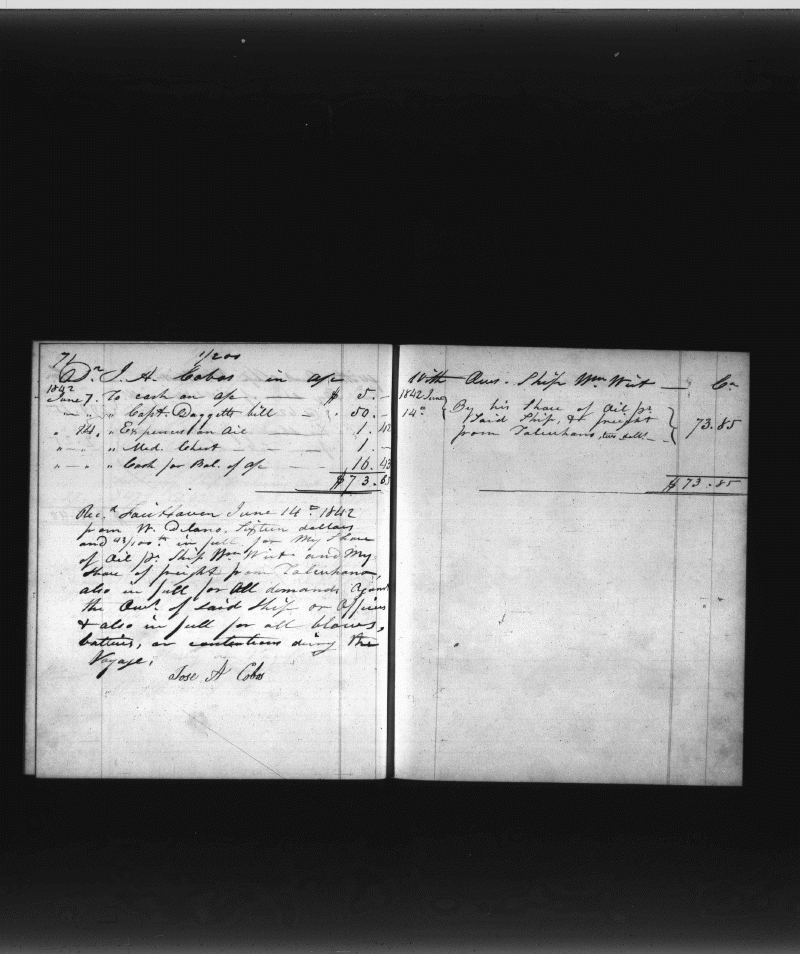 71
1/200
Dr. J. A. Cobos in a/c
1842
June 7. To cash on a/c — $ 5. –
" – " " Capt. Daggetts bill – . 50. –
" 14, " Expenses on Oil 1. 42
" — " " Med. Chest — — 1. –
" — " " Cash for Bal. of a/c — — 16. 43
$73. 85
Rec.d Fairhaven June 14th 1842
from W. Delano, Sixteen dollars
and 43/100ths in full for My Share
of Oil pr. Ship Wm Wirt and My
Share of freight from Talcuhano,
also in full for All demands against
the Owrs. of said Ship or Officers
& also in full for all blows,
batteries, or contentions during the
Voyage.
Jose A Cobos
With Ows. Ship Wm Wirt — Cr
1842 June
14th By his Share of Oil pr.
Said Ship, & freight
from Talcuhano, 73.85
$73.85